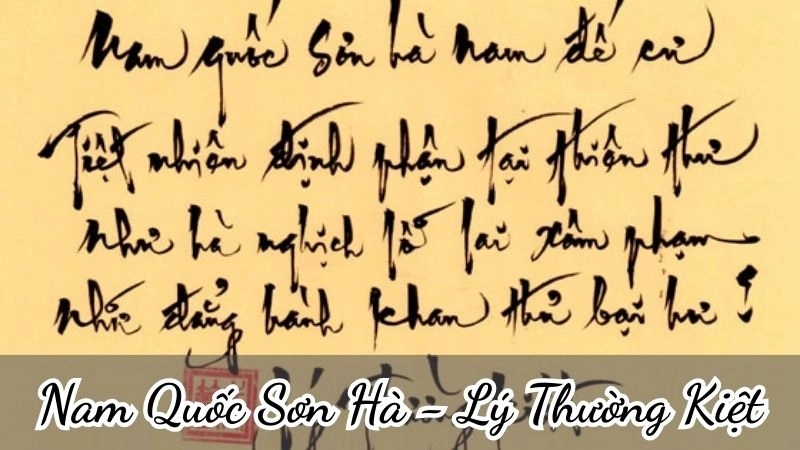 Nam quốc Sơn hà nam đế cư
Tiệt nhiên định phận tại thiên thư
như hà nghịch lỗ lai xâm phạm
nhữ đẳng hành khan thủ bại hư !
Nam Quốc Sơn Hà – Lý Thường Kiệt